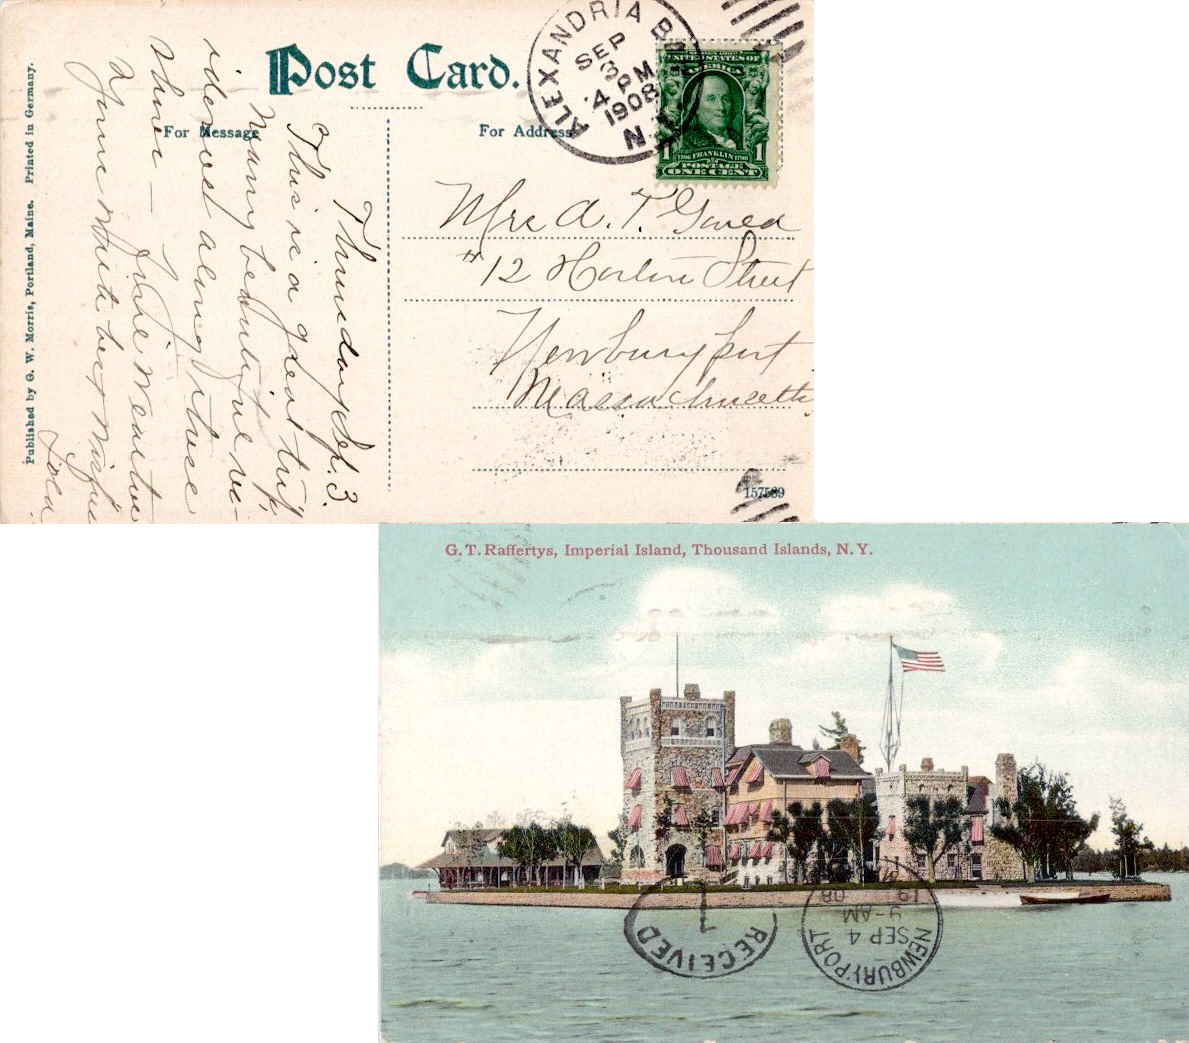 Post Card.
For Message
For Address
Published by G. W. Morris, Portland, Maine. Printed in Germany.
ALEXANDRIA BAY
SEP
3
4 PM
1908
N.Y.
UNITED STATES OF
AMERICA
1706 FRANKLIN 1790
POSTAGE
1 ONE CENT 1
Thursday Sep. 3.
This is a great trip
Many beautiful re-
sidences along these
shore —
Fine weather
Yours with best wishes
Mrs A. T.
#12 Street
Newburyport
Massachusetts
157589
G. T. Raffertys, Imperial Island, Thousand Islands, N. Y.
RECEIVED
7
NEWBURYPORT
SEP 4
9-AM
19 08